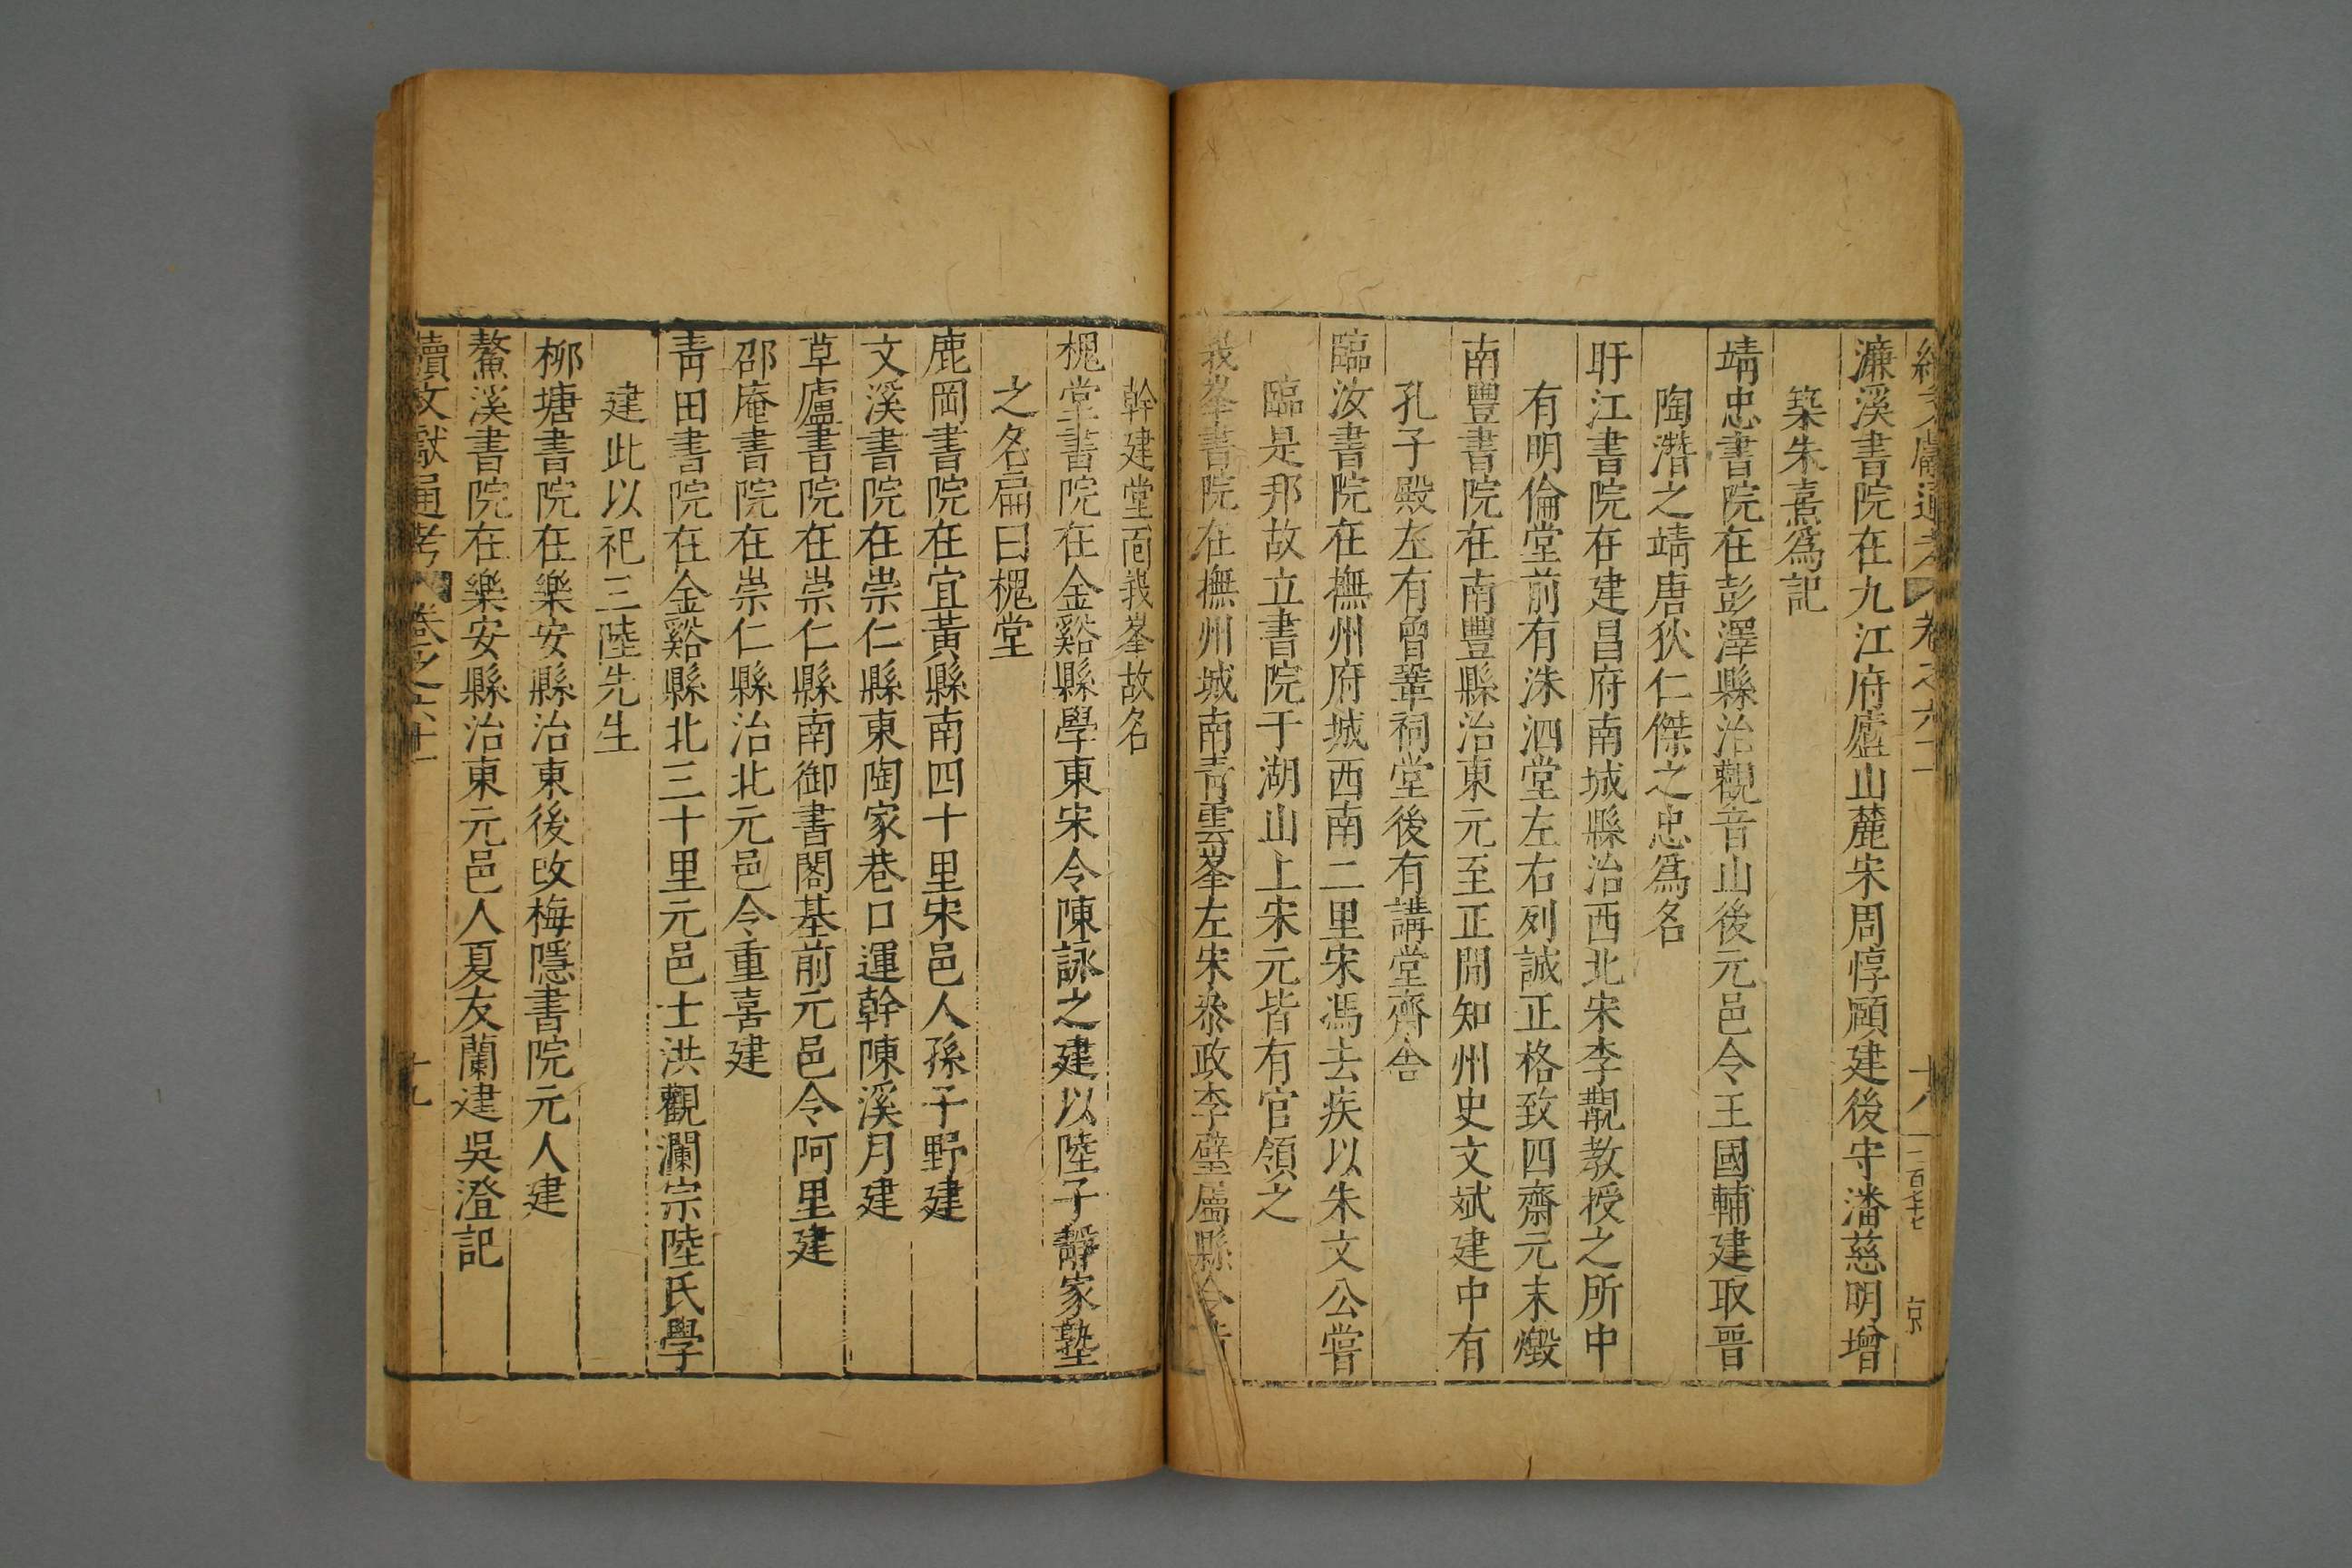 續文獻通考 卷之六十一 十八 二百七十七 京
濂溪書院在九江府廬山麓宋周惇頤建後守潘慈明增
築朱熹爲記
靖忠書院在彭澤縣治觀音山後元邑令王國輔建取晉
陶潛之靖唐狄仁傑之忠爲名
盱江書院在建昌府南城縣治西北宋李覯教授之所中
有明倫堂前有洙泗堂左右列誠正格致四齋元末燬
南豐書院在南豐縣治東元至正間知州史文斌建中有
孔子殿左有曾鞏祠堂後有講堂齊舍
臨汝書院在撫州府城西南二里宋馮去疾以朱文公嘗
臨是邦故立書院于湖山上宋元皆有官領之
峩峯書院在撫州城南青雲峯左宋叅政李壁屬縣令黃
幹建堂面峩峯故名
槐堂書院在金谿縣學東宋令陳詠之建以陸子靜家塾
之名扁曰槐堂
鹿岡書院在宜黃縣南四十里宋邑人孫子野建
文溪書院在崇仁縣東陶家巷口運幹陳溪月建
草廬書院在崇仁縣南御書閣基前元邑令阿里建
邵庵書院在崇仁縣治北元邑令重喜建
青田書院在金谿縣北三十里元邑士洪觀瀾宗陸氏學
建此以祀三陸先生
柳塘書院在樂安縣治東後改梅隱書院元人建
鰲溪書院在樂安縣治東元邑人夏友蘭建吳澄記
續文獻通考 卷之六十一 十九